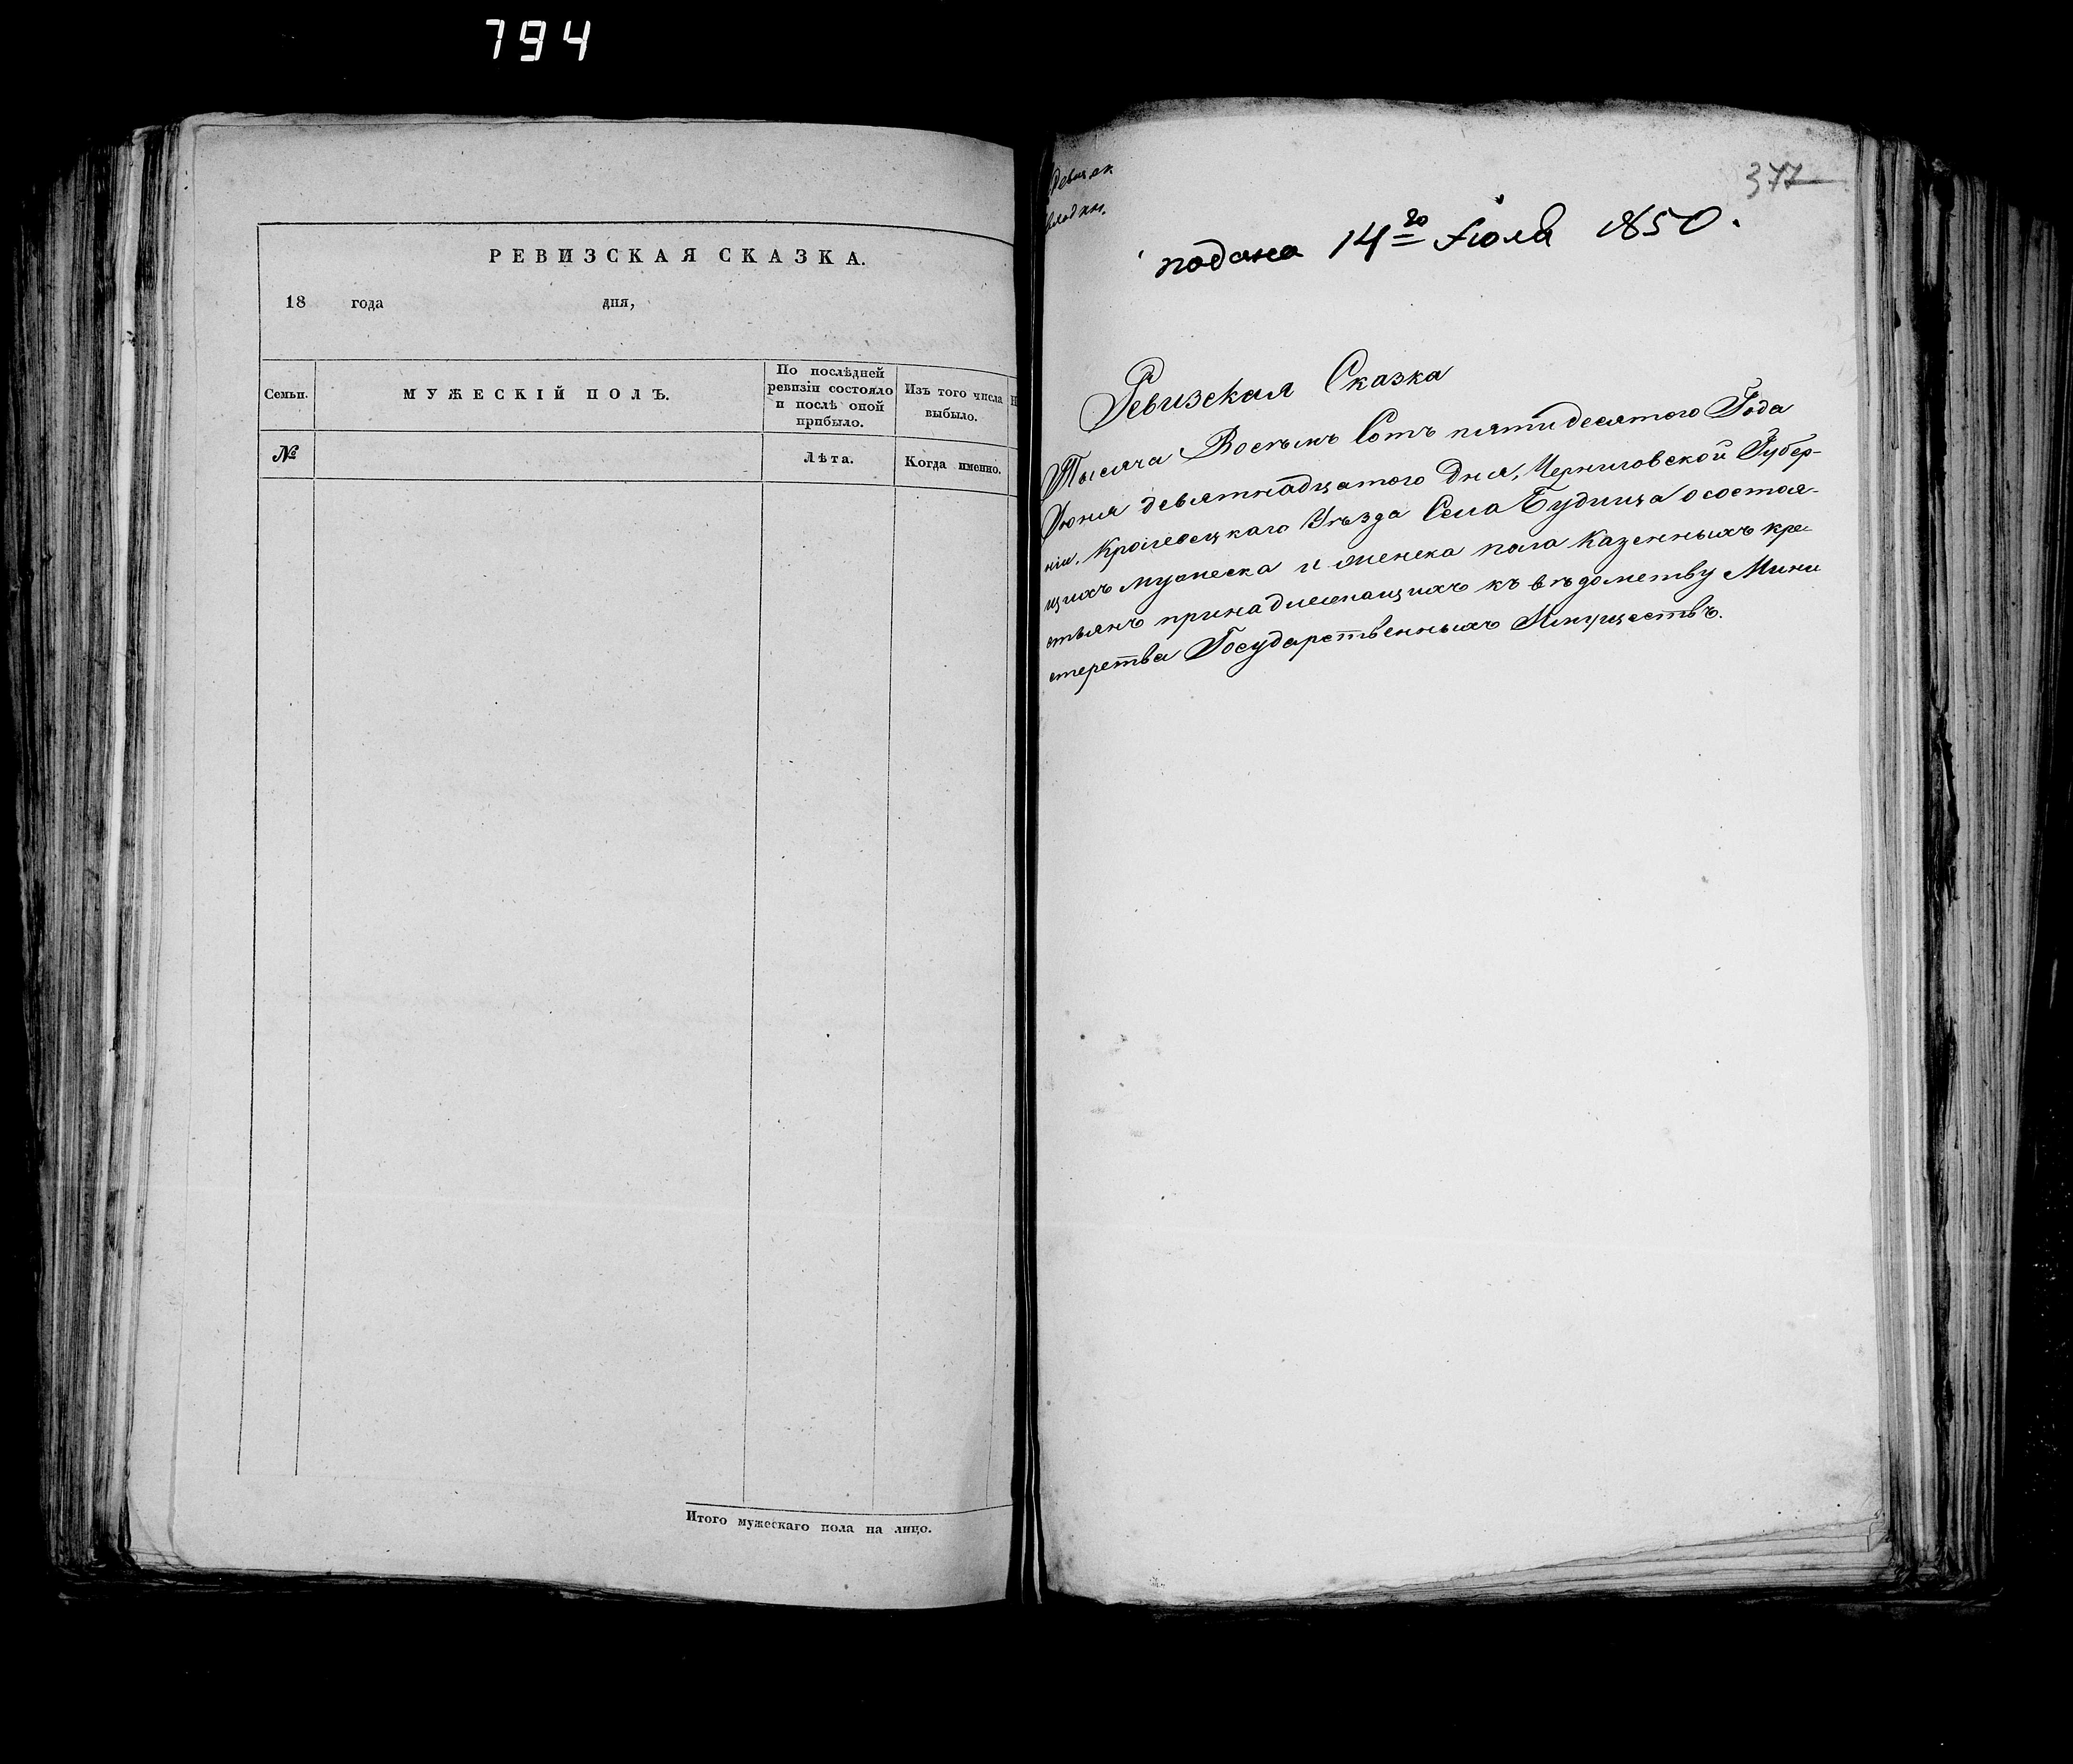 794
РЕВИЗСКАЯ СКАЗКА.
18 года дня,
Семьи.
МУЖЕСКІЙ ПОЛЪ.
По послѣдней
ревизіи состояло
и послѣ оной
прибыло.
Изъ того числа
выбыло.
№
Лѣта.
Когда именно.
Итого мужескаго пола на лицо.
377
подана 14го Іюля 1850.
Ревизская Сказка
Тысяча Восемъ Сотъ пятидесятого Года
Июня девятнадцатого Дня, Черниговской Губер-
ніи, Кролевецкаго Уѣзда Села Будища о состоя-
щихъ мужеска и женска пола Казенныхъ кре-
стьянъ принадлежащихъ къ вѣдомству Мини
стерства Государственныхъ Имуществъ.